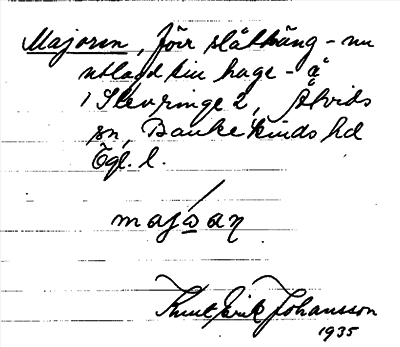 Majoren, förr slåtthäng – nu
utlagd till hage – å
1 Slevringe 2, Åtvids
sn, Bankekinds hd
Ögl. l.
majωaη
Knut Erik Johansson
1935